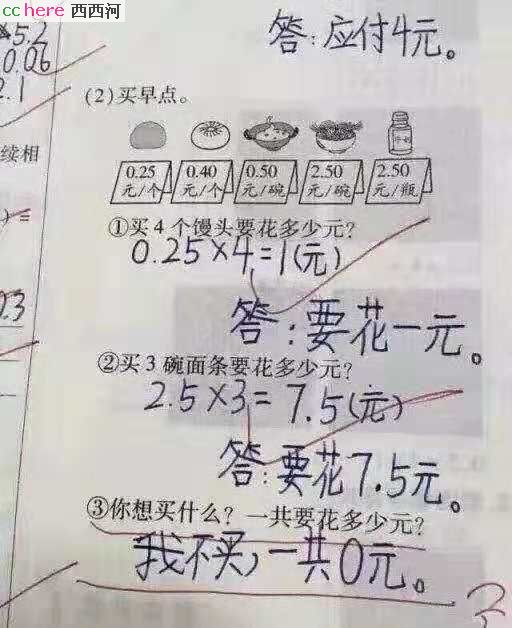 cchere 西西河
×5.2
0.06
2.1
答:应付4元。
(2)买早点。
续相
0.25 0.40 0.50 2.50 2.50
元/个 元/个 元/碗 元/碗 元/瓶
①买4个馒头要花多少元?
0.25×4=1(元)
0.3
答:要花一元。
②买3碗面条要花多少元?
2.5×3=7.5(元)
答:要花7.5元。
③你想买什么?一共要花多少元?
我不买,一共0元。
?